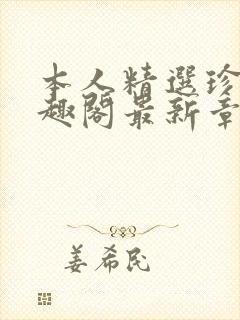 本人精選珍
趣閣最新章
姜希民